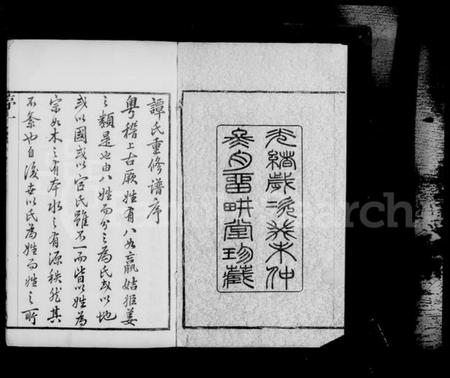 光緒歲次癸未仲
冬月留畊堂珍藏
譚氏重修譜序
粵稽上古厥姓有八如嬴姑姬姜
之類是也由八姓而分之為氏或以地
或以國或以官氏雖不一而皆以姓為
宗如木之有本水之有源秩然其
不紊也自後世以氏為姓而姓之所